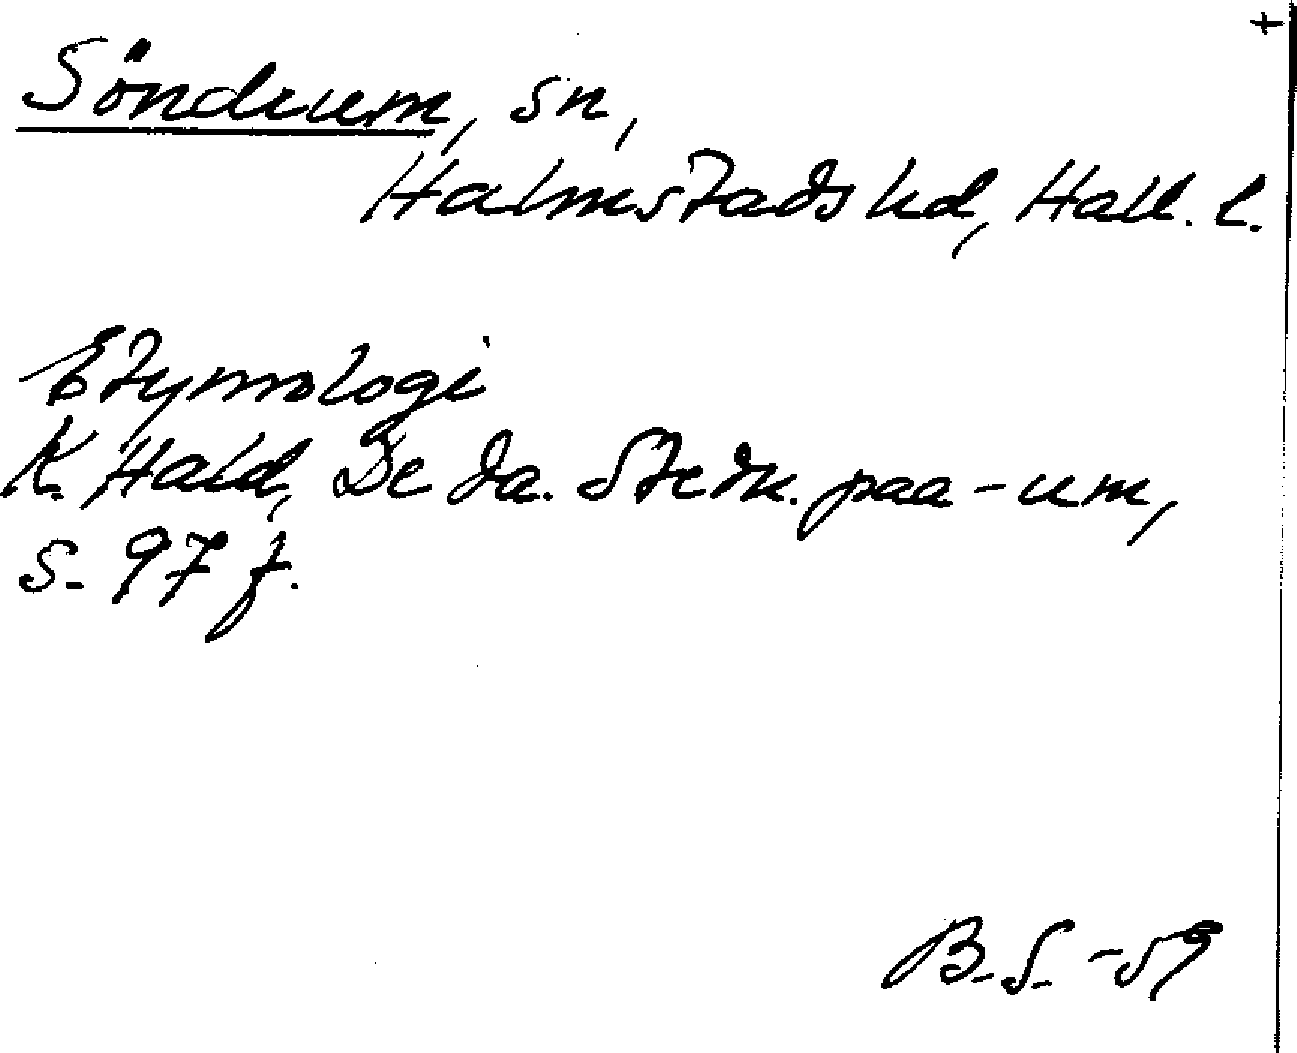 +
Söndrum, sn,
Halmstads hd, Hall. l.
Etymologi
K. Hald, De da. Stedn. paa -um,
s. 97 f.
B.S. -59